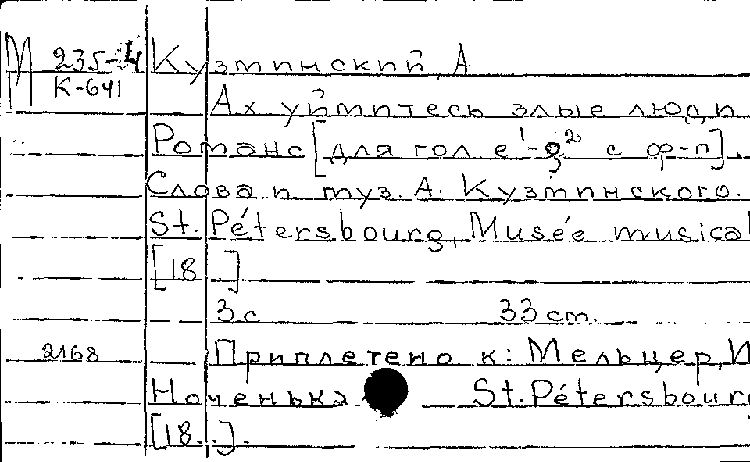 М 235-4 Кузминский, А
К-641
Ах уймитесь злые люди
Романс [для гол e¹-g² с ф-п].
Слова и муз. А. Кузминского.
St. Pétersbourg, Musée musical
[18 ]
3 с 33 cm.
2168 Приплетено к: Мельцер, И
Ноченька St. Pétersbourg
[18..].